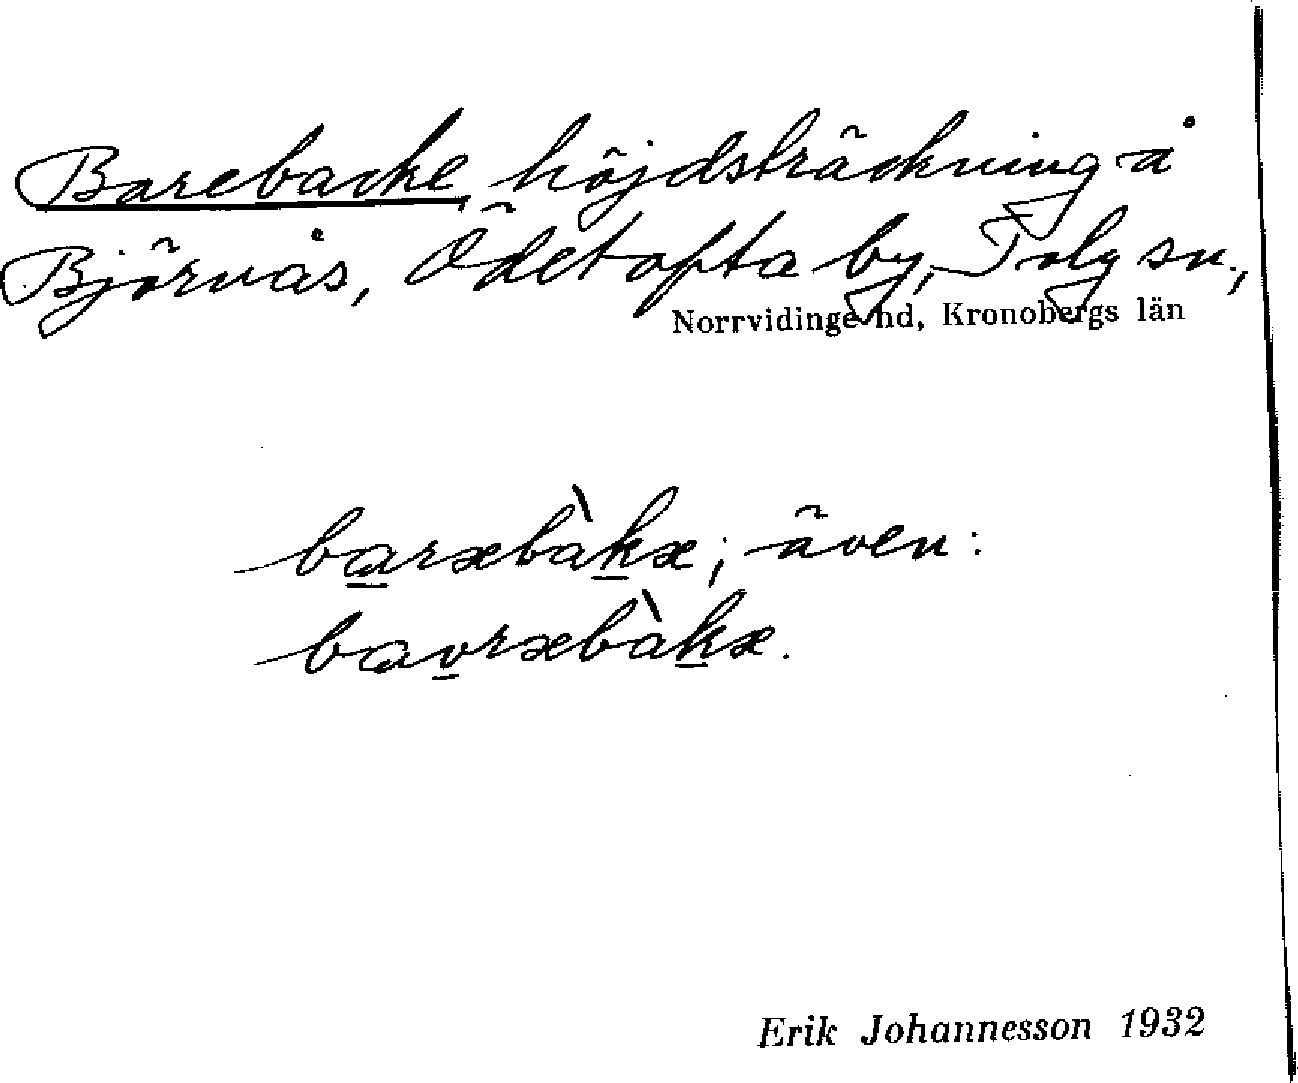 Barebacke, höjdsträckning å
Björnås, Ödetofta by, Tolg sn.,
Norrvidinge hd, Kronobergs län
bɑ̲ræbàk̲æ; även:
bɑo̲ræbàk̲æ.
Erik Johannesson 1932